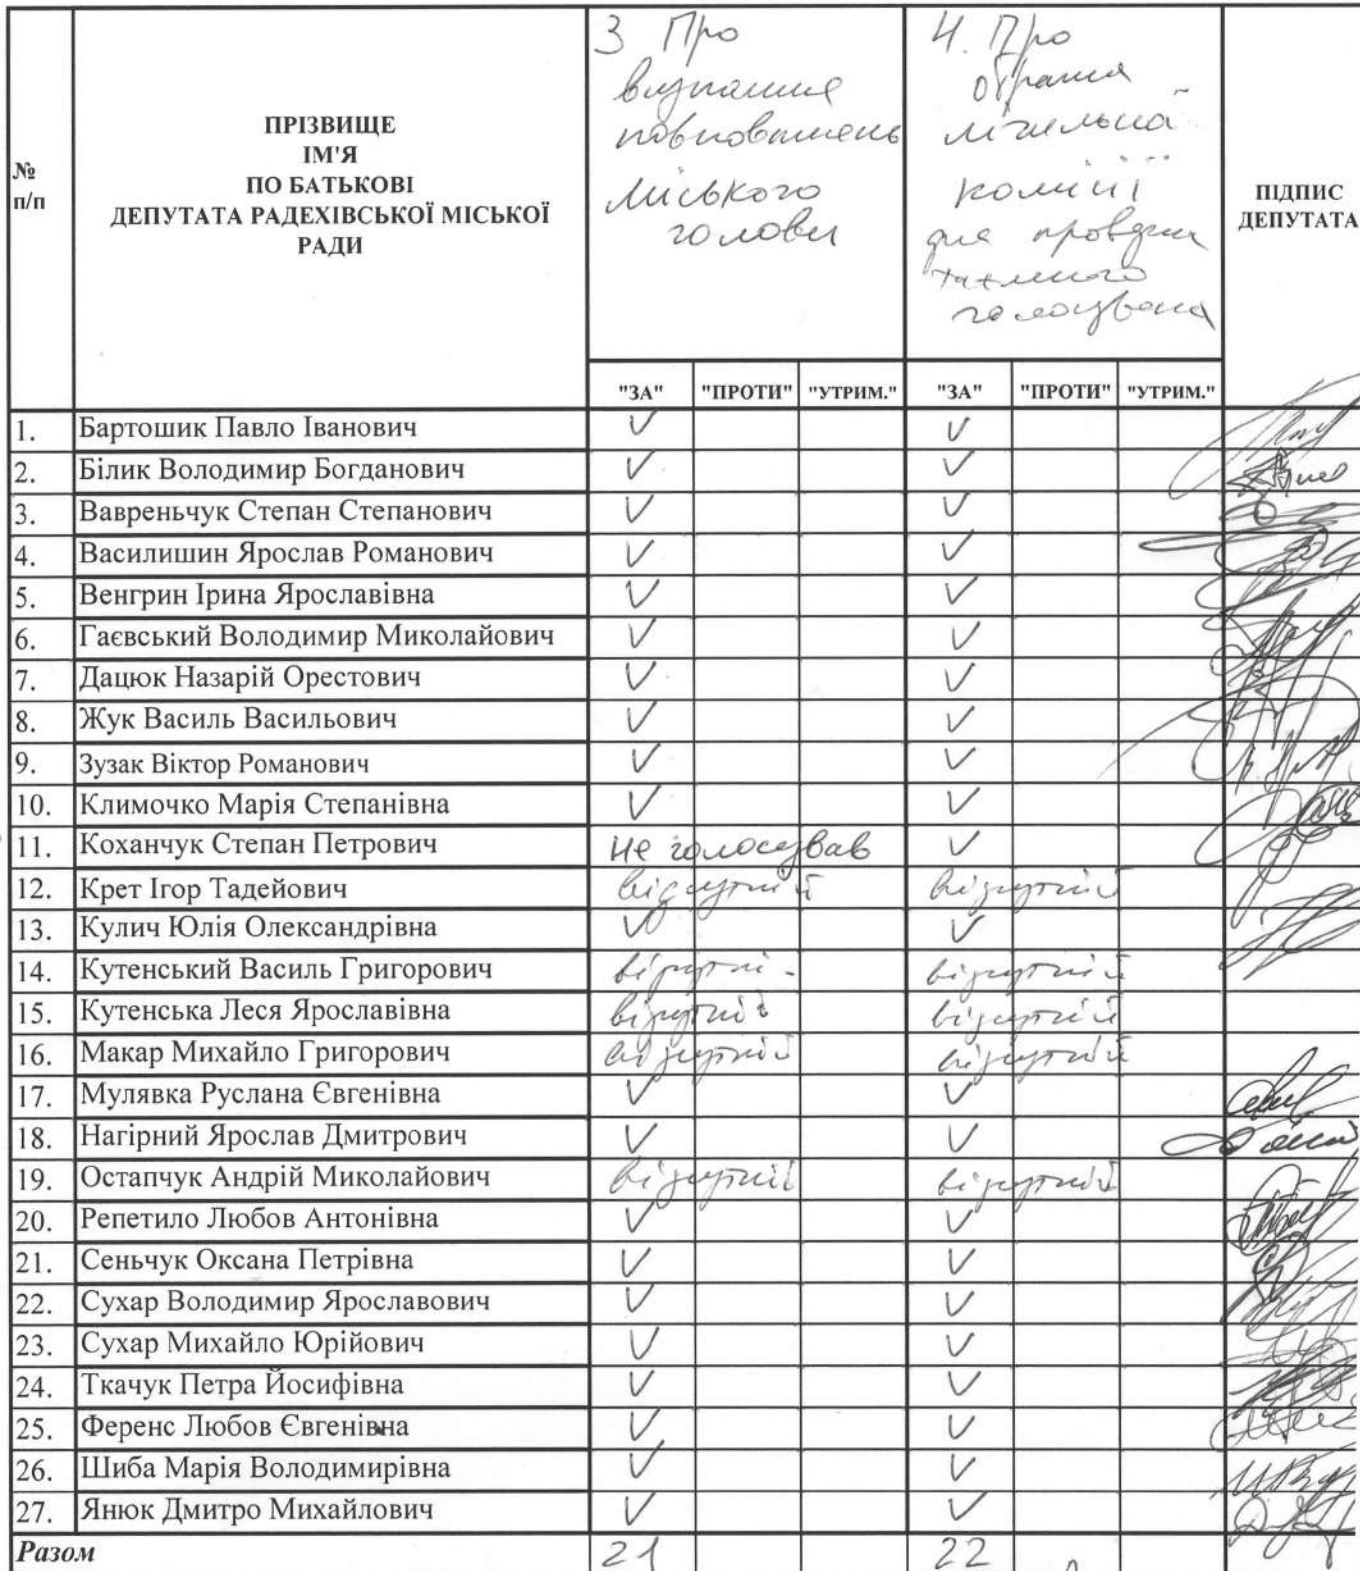 №
п/п
ПРІЗВИЩЕ
ІМ'Я
ПО БАТЬКОВІ
ДЕПУТАТА РАДЕХІВСЬКОЇ МІСЬКОЇ
РАДИ
3 Про
визнання
повноважень
міського
голови
4. Про
обрання
лічильної
комісії
для
таємного
голосування
ПІДПИС
ДЕПУТАТА
"ЗА" "ПРОТИ" "УТРИМ." "ЗА" "ПРОТИ" "УТРИМ."
1. Бартошик Павло Іванович V V
2. Білик Володимир Богданович V V
3. Вавреньчук Степан Степанович V V
4. Василишин Ярослав Романович V V
5. Венгрин Ірина Ярославівна V V
6. Гаєвський Володимир Миколайович V V
7. Дацюк Назарій Орестович V V
8. Жук Василь Васильович V V
9. Зузак Віктор Романович V V
10. Климочко Марія Степанівна V V
11. Коханчук Степан Петрович не голосував V
12. Крет Ігор Тадейович відсутній відсутній
13. Кулич Юлія Олександрівна V V
14. Кутенський Василь Григорович відсутній відсутній
15. Кутенська Леся Ярославівна відсутній відсутній
16. Макар Михайло Григорович відсутній відсутній
17. Мулявка Руслана Євгенівна V V
18. Нагірний Ярослав Дмитрович V V
19. Остапчук Андрій Миколайович відсутній відсутній
20. Репетило Любов Антонівна V V
21. Сеньчук Оксана Петрівна V V
22. Сухар Володимир Ярославович V V
23. Сухар Михайло Юрійович V V
24. Ткачук Петра Йосифівна V V
25. Ференс Любов Євгенівна V V
26. Шиба Марія Володимирівна V V
27. Янюк Дмитро Михайлович V V
Разом 21 22